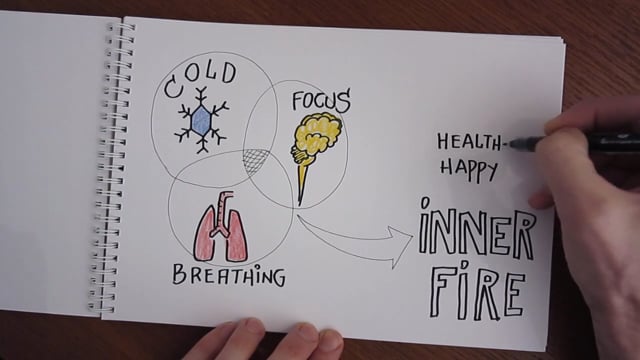 COLD
FOCUS
BREATHING
HEALTH-
HAPPY
INNER
FIRE